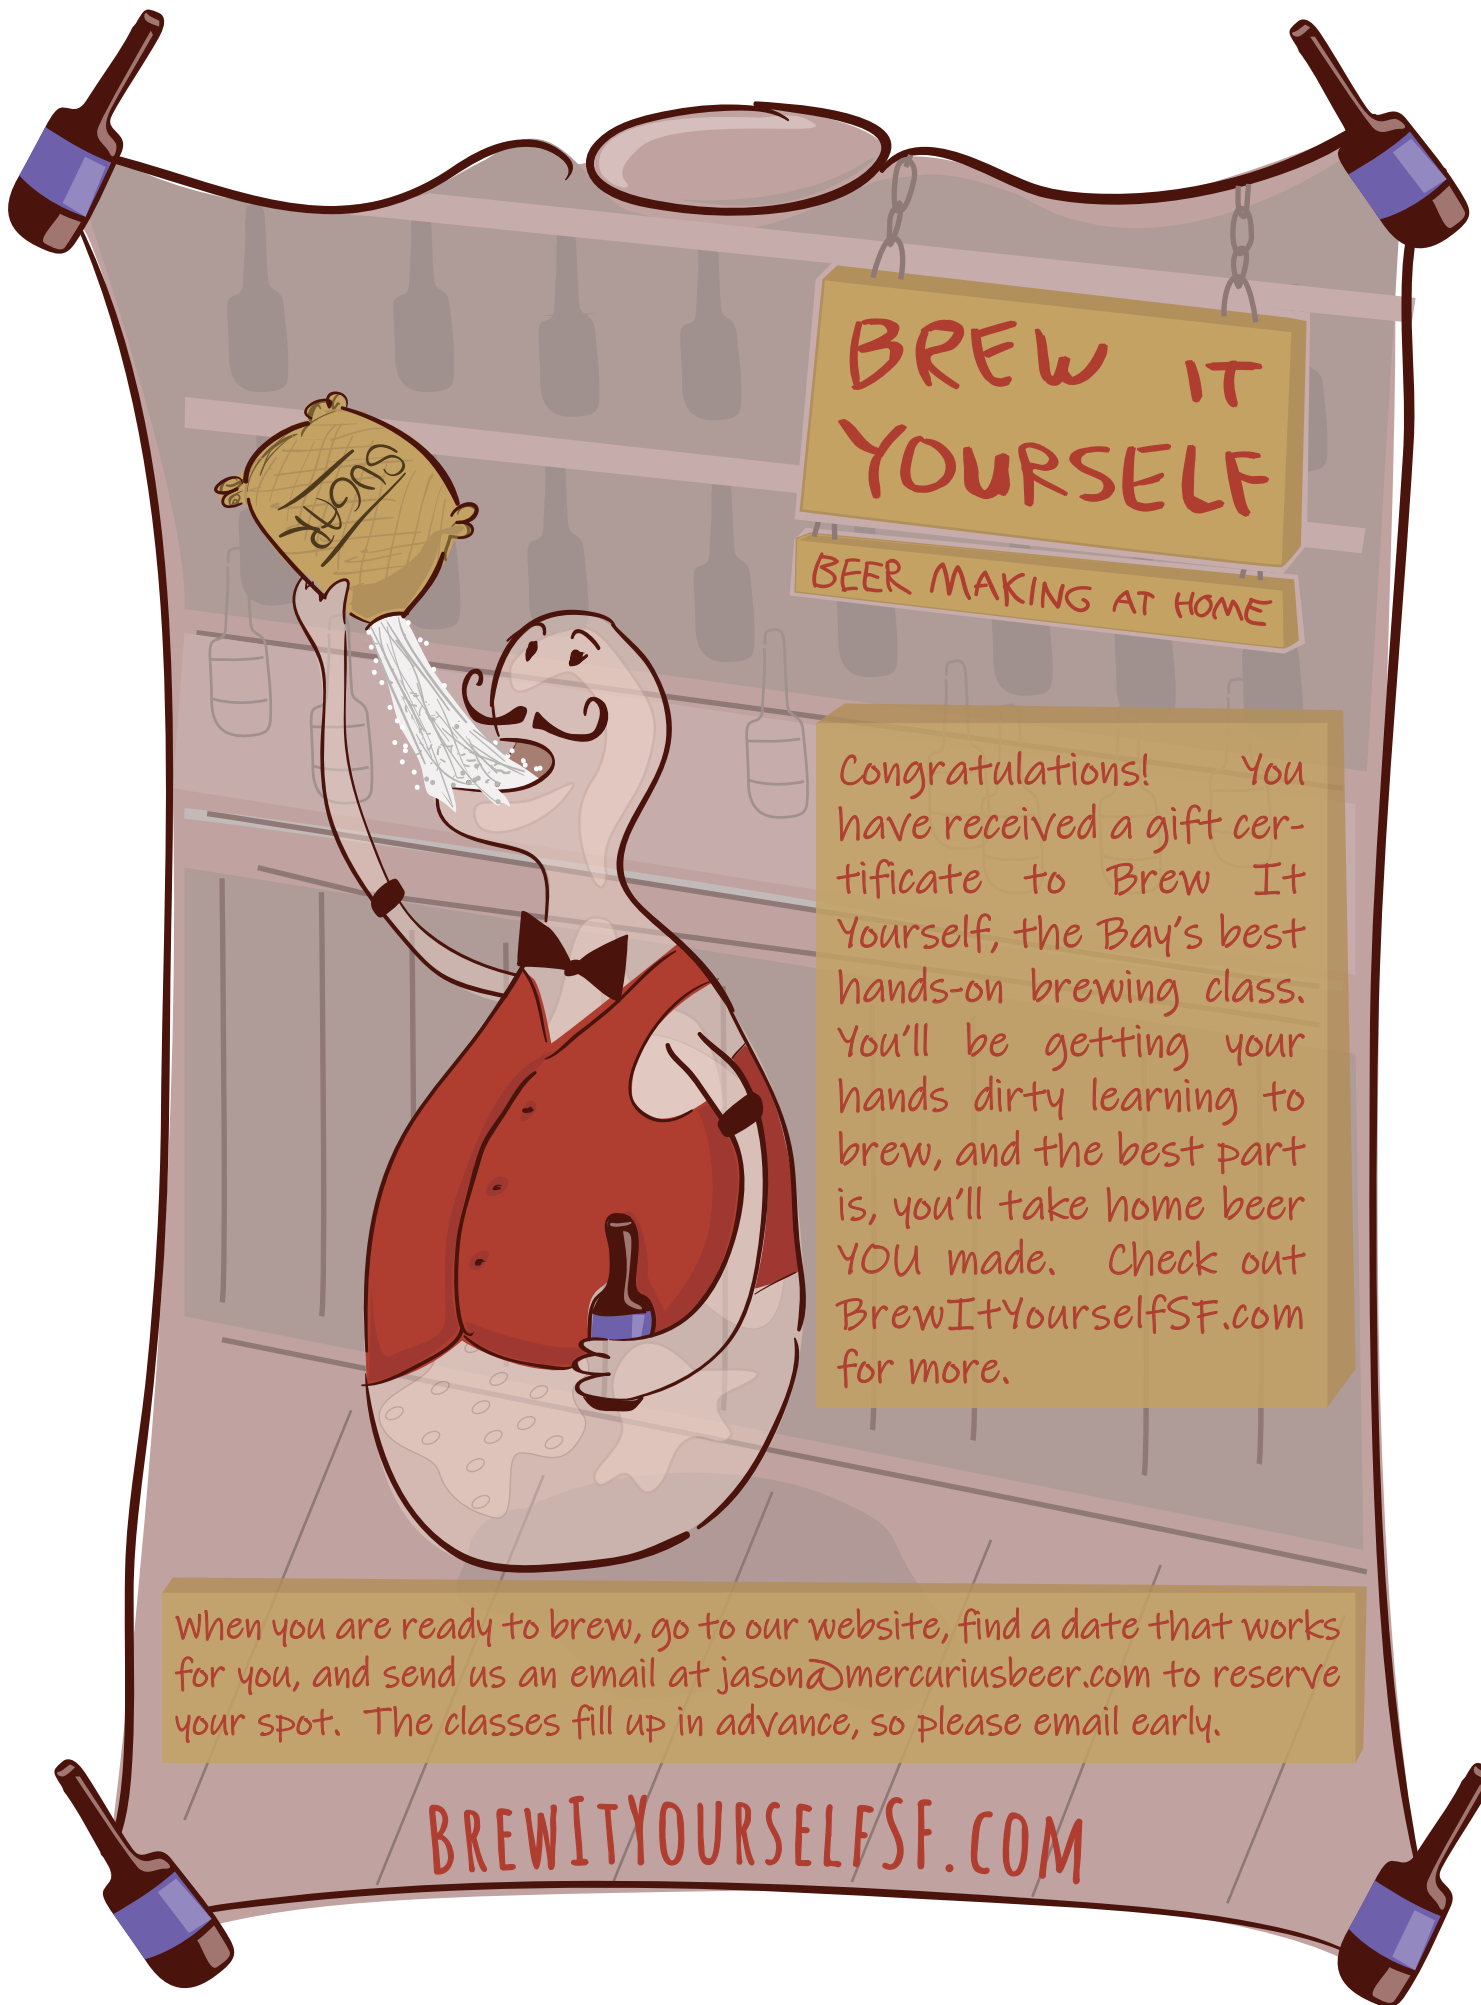 BREW IT
YOURSELF
BEER MAKING AT HOME
SUGAR
Congratulations! You
have received a gift cer-
tificate to Brew It
Yourself, the Bay's best
hands-on brewing class.
You'll be getting your
hands dirty learning to
brew, and the best part
is, you'll take home beer
YOU made. Check out
BrewItYourselfSF.com
for more.
When you are ready to brew, go to our website, find a date that works
for you, and send us an email at jason@mercuriusbeer.com to reserve
your spot. The classes fill up in advance, so please email early.
BREWITYOURSELFSF.COM